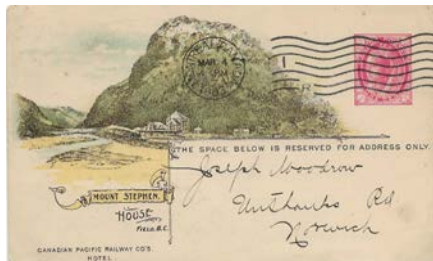 MAR 4
PM
THE SPACE BELOW IS RESERVED FOR ADDRESS ONLY.
Joseph Woodrow
Unthanks Rd
Norwich
MOUNT STEPHEN
HOUSE
FIELD, B.C.
CANADIAN PACIFIC RAILWAY CO'S.
HOTEL.